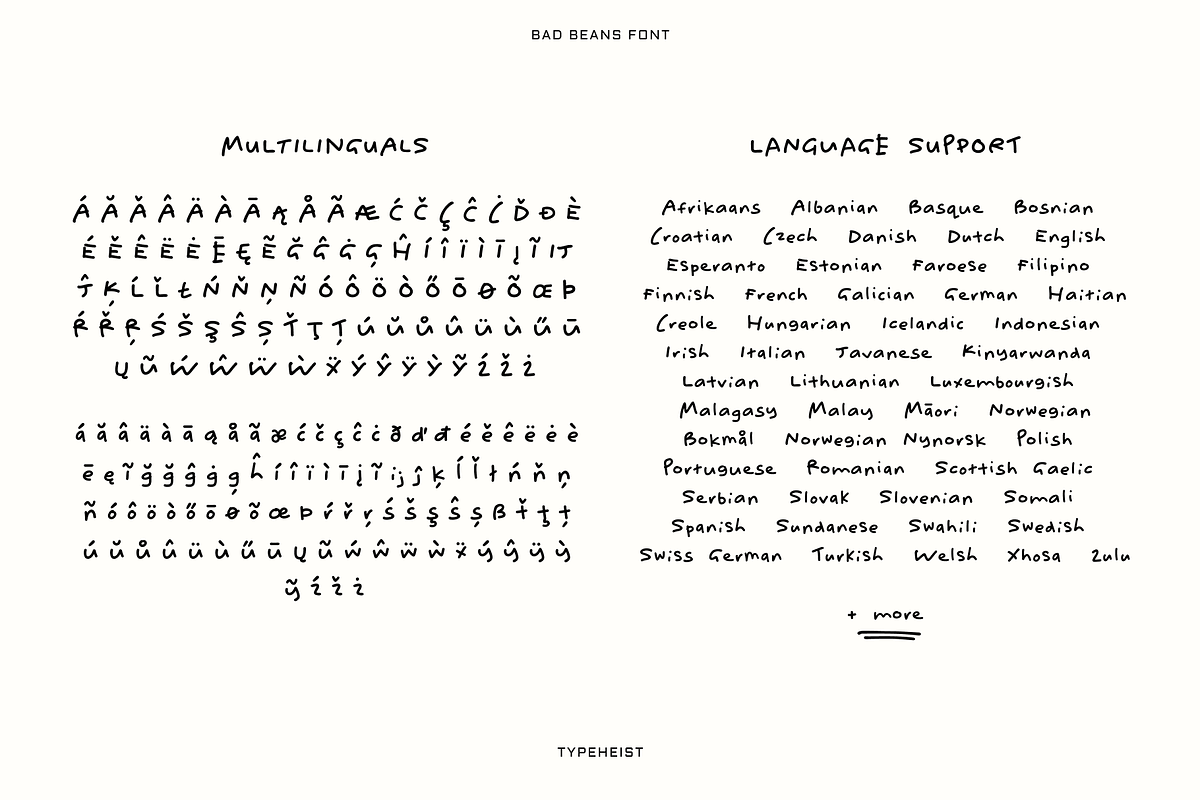 BAD BEANS FONT
MULTILINGUALS
Á Ă Ǎ Â Ä À Ā Ą Å Ã Æ Ć Č Ç Ĉ Ċ Ď Đ È
É Ě Ê Ë Ė Ē Ę Ẽ Ğ Ĝ Ġ Ģ Ĥ Í Î Ï Ì Ī Į Ĩ IJ
Ĵ Ķ Ĺ Ľ Ł Ń Ň Ņ Ñ Ó Ô Ö Ò Ő Ō Ø Õ Œ Þ
Ŕ Ř Ŗ Ś Š Ş Ŝ Ș Ť Ţ Ț Ú Ŭ Ů Û Ü Ù Ű Ū
Ų Ũ Ẃ Ŵ Ẅ Ẁ Ẍ Ý Ŷ Ÿ Ỳ Ỹ Ź Ž Ż
á ă â ä à ā ą å ã æ ć č ç ĉ ċ ð ď đ é ě ê ë ė è
ē ę ĩ ğ ğ ĝ ġ ģ ĥ í î ï ì ī į ĩ ij ĵ ķ ĺ ľ ł ń ň ņ
ñ ó ô ö ò ő ō ø õ œ þ ŕ ř ŗ ś š ş ŝ ș ß ť ţ ț
ú ŭ ů û ü ù ű ū ų ũ ẃ ŵ ẅ ẁ ẍ ý ŷ ÿ ỳ
ỹ ź ž ż
LANGUAGE SUPPORT
Afrikaans Albanian Basque Bosnian
Croatian Czech Danish Dutch English
Esperanto Estonian Faroese Filipino
Finnish French Galician German Haitian
Creole Hungarian Icelandic Indonesian
Irish Italian Javanese Kinyarwanda
Latvian Lithuanian Luxembourgish
Malagasy Malay Māori Norwegian
Bokmål Norwegian Nynorsk Polish
Portuguese Romanian Scottish Gaelic
Serbian Slovak Slovenian Somali
Spanish Sundanese Swahili Swedish
Swiss German Turkish Welsh Xhosa Zulu
+ more
TYPEHEIST